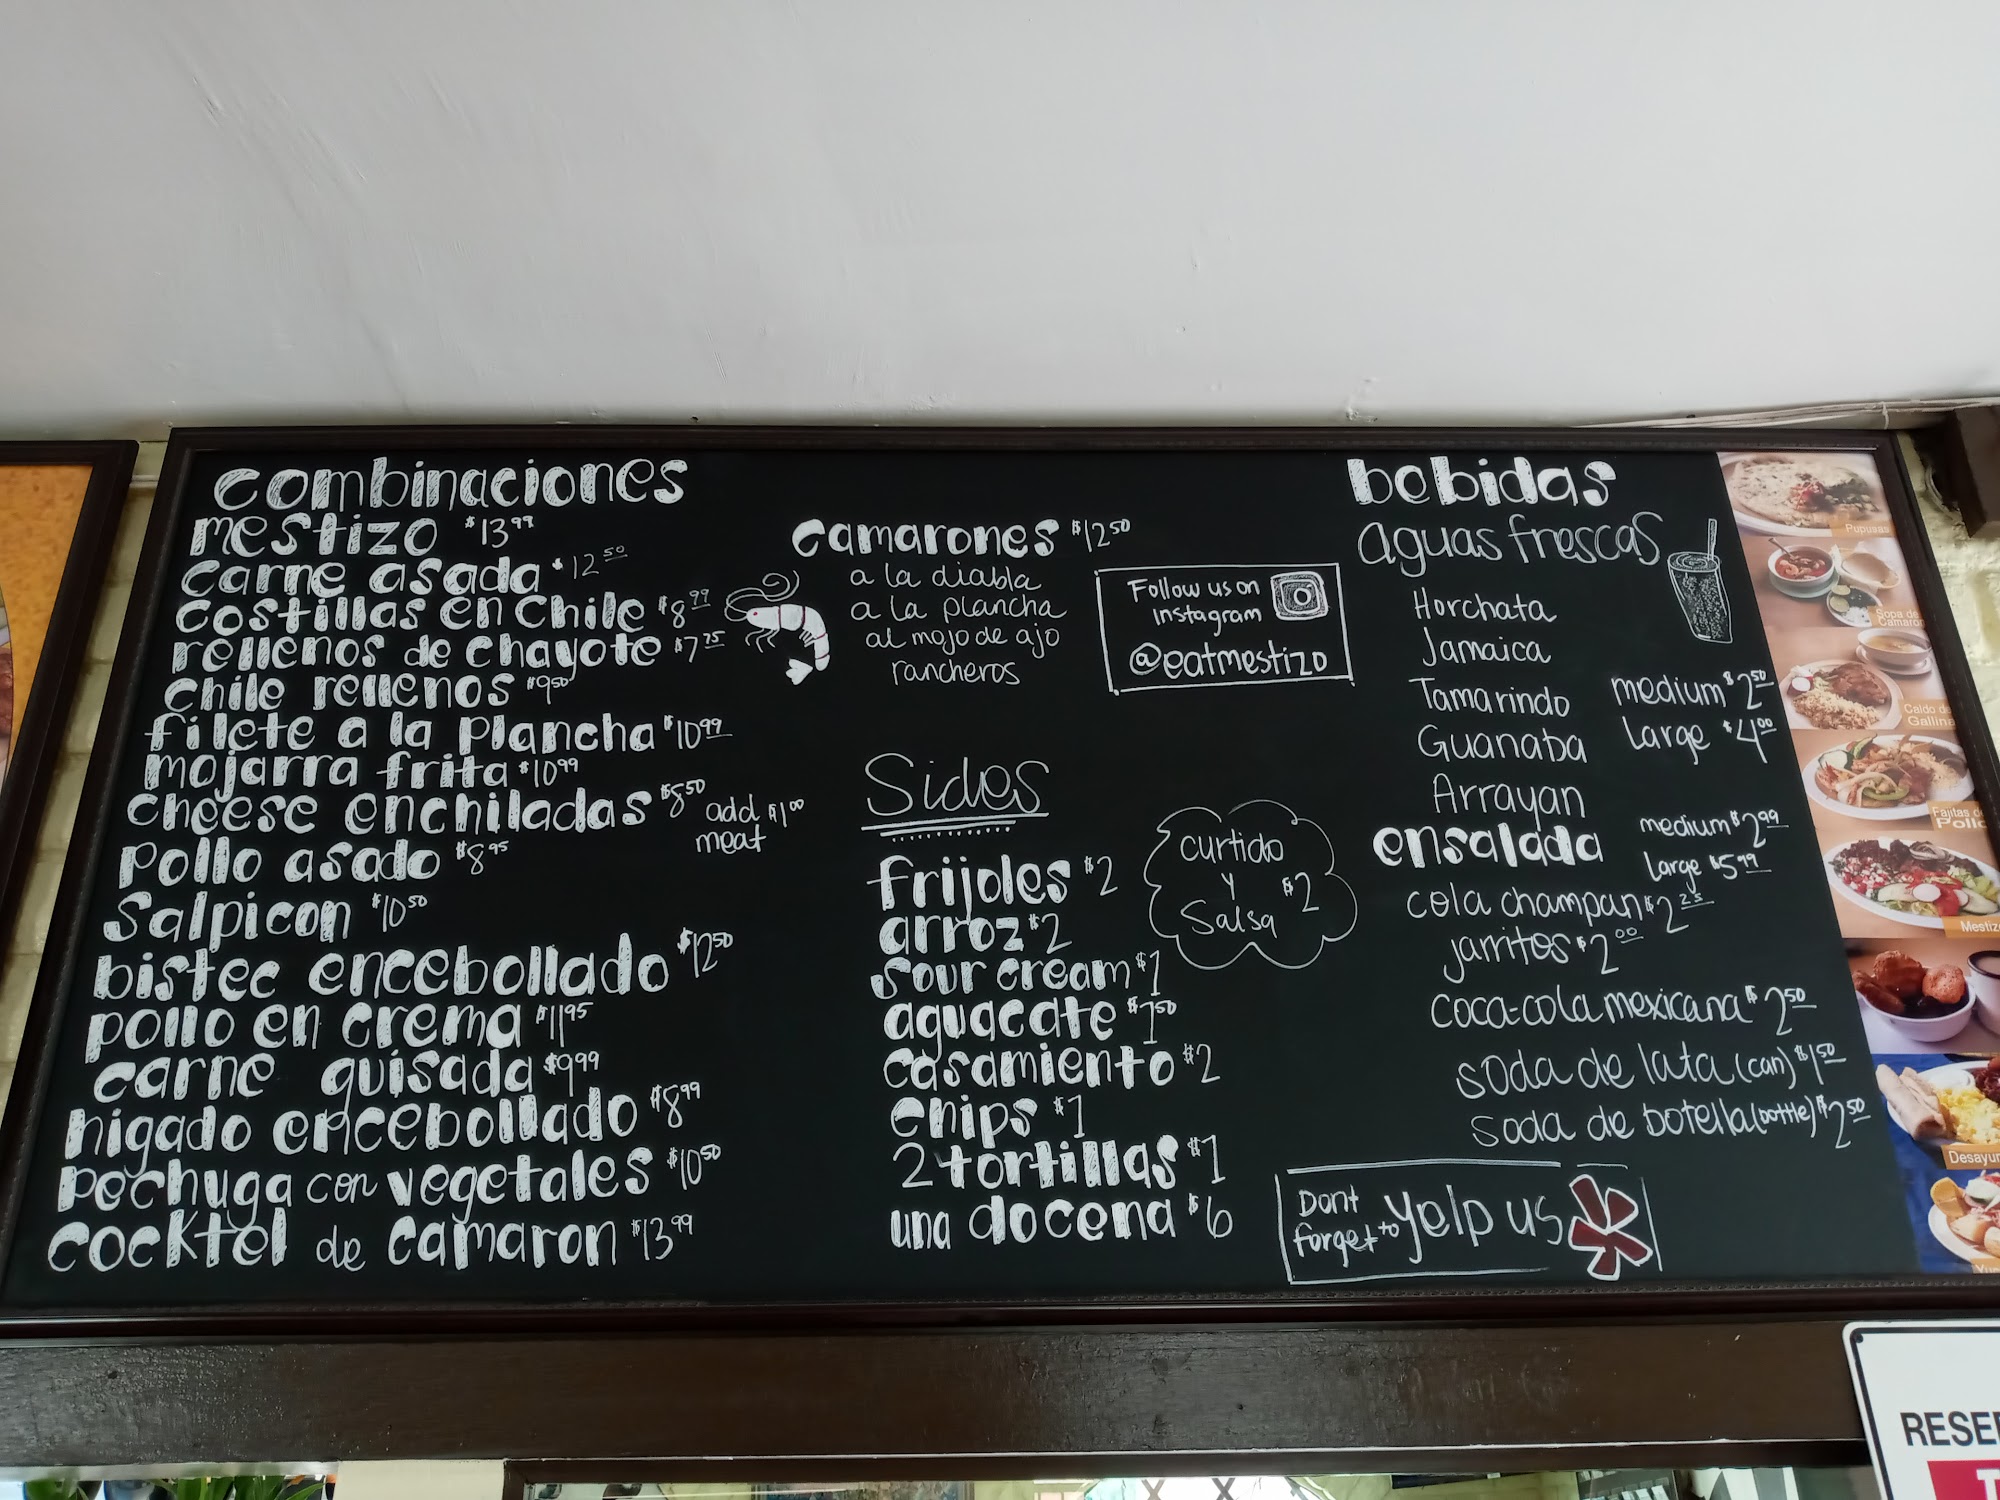 combinaciones
mestizo $13.99
carne asada $12.50
costillas en chile $8.99
rellenos de chayote $7.75
chile rellenos $9.50
filete a la plancha $10.99
mojarra frita $10.99
cheese enchiladas $8.50 add $1.00
meat
pollo asado $8.95
salpicon $10.50
bistec encebollado $12.50
pollo en crema $11.95
carne guisada $9.99
higado encebollado $8.99
pechuga con vegetales $10.50
cocktel de camaron $13.99
camarones $12.50
a la diabla
a la plancha
al mojo de ajo
rancheros
Follow us on
Instagram
@eatmestizo
Sides
frijoles $2
arroz $2
sour cream $1
aguacate $1.50
casamiento $2
chips $1
2 tortillas $1
una docena $6
curtido
y
Salsa $2
bebidas
aguas frescas
Horchata
Jamaica
Tamarindo
Guanaba
Arrayan
medium $2.50
large $4.00
ensalada
medium $2.99
large $5.99
cola champan $2.25
jarritos $2.00
coca-cola mexicana $2.50
soda de lata (can) $1.50
soda de botella (bottle) $2.50
Dont
forget to yelp us
Pupusas
Sopa de
Camaron
Caldo de
Gallina
Fajitas de
Pollo
Mestizo
Desayun
RESE